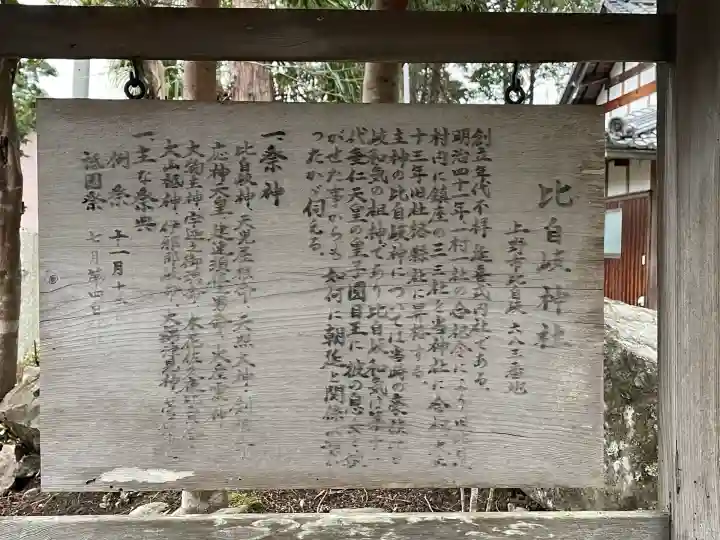 比自岐神社
上野市比自岐 六八三番地
創立年代不詳、延喜式内社である。
明治四十一年一村一社の合祀令により
村内に鎮座の三三社を当神社に合祀
十三年旧社格縣社に昇格する。
主神の比自岐神については当時の豪族
岐和気の祖神であり比自岐和気は
代垂仁天皇の皇子圓目王に彼の息女を
がせた事からも如何に朝廷と関係の
ったかが伺える。
一祭神
比自岐神、天児屋根命、天照大神
応神天皇、建速須佐男命
大物主神、木花佐久夜
大山祇神、伊邪那
一主な祭典
例祭 十一月十
祇園祭 七月第四